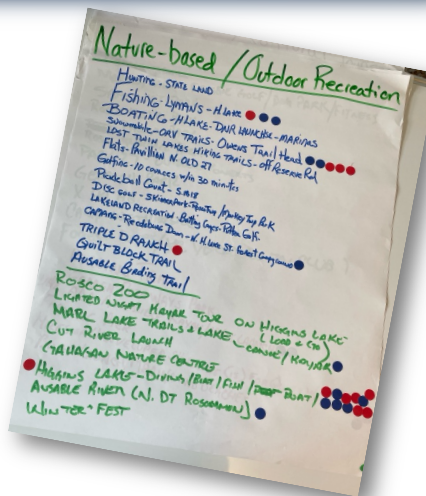 Nature-based / Outdoor Recreation
HUNTING - STATE LAND
FISHING - LYMANS - H LAKE
BOATING - H LAKE - DNR LAUNCHES - MARINAS
Snowmobile - ORV TRAILS - OWENS Trail Head
LOST TWIN LAKES HIKING TRAILS - off Reserve Rd
Flats - Pavillion N. OLD 27
Golfing - 10 courses w/in 30 minutes
Pickleball Court -
DISC GOLF - SKinner Park -
LAKELAND RECREATION - Batting Cages -
CAMPING - Reedsburg Dam - N. H. Lake St. Forest Campground
TRIPLE D RANCH
QUILT BLOCK TRAIL
AUSABLE Birding TRAIL
ROSCO ZOO
LIGHTED NIGHT KAYAK TOUR ON HIGGINS LAKE
MARL LAKE TRAILS & LAKE - CANOE / KAYAK
CUT RIVER LAUNCH
GAHAGAN NATURE CENTRE
HIGGINS LAKE - DIVING / BOAT / FISH / BOAT /
AUSABLE RIVER (N. DT ROSCOMMON)
WINTER FEST